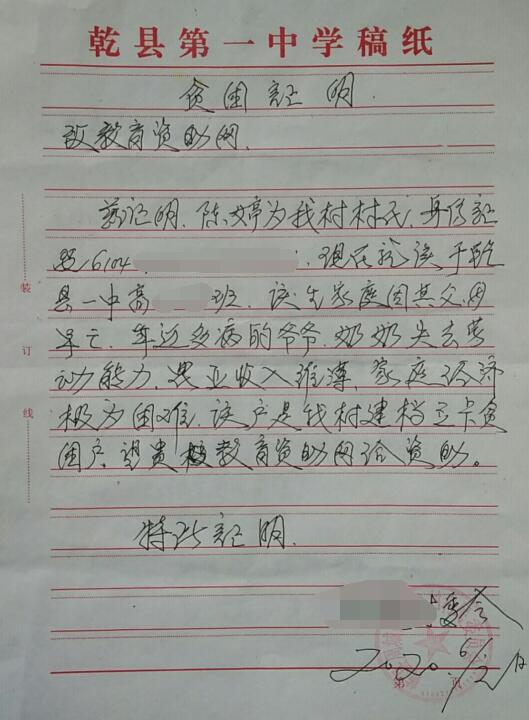 乾县第一中学稿纸
贫困证明
致教育资助网.
兹证明.陈婷为我村村民.身份证
号6104 .现在就读于乾
县一中高 班.该生家庭因其父.母
早亡.年迈多病的爷爷.奶奶失去劳
动能力.农业收入维薄.家庭经济
极为困难.该户是我村建档立卡贫
困户.望贵教育资助网给资助。
特此证明.
委会
2020.6/2日
装
订
线
第 页